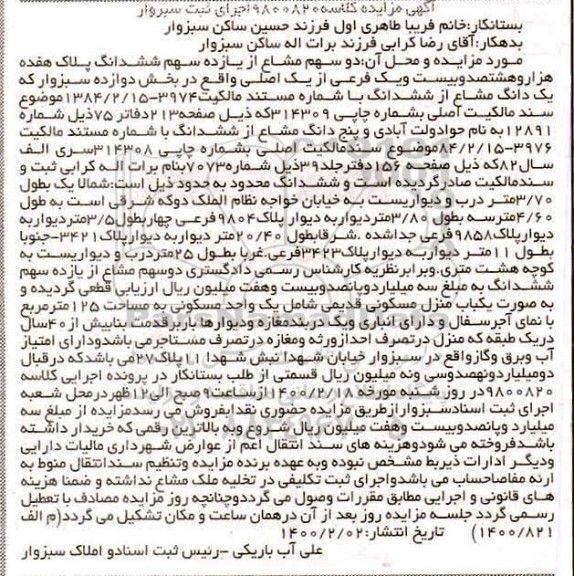 آگهی مزایده کلاسه۹۸۰۰۸۲۰اجرای ثبت سبزوار
بستانکار:خانم فریبا طاهری اول فرزند حسین ساکن سبزوار
بدهکار:آقای رضا کرابی فرزند برات اله ساکن سبزوار
مورد مزایده و محل آن:دو سهم مشاع از یازده سهم ششدانگ پلاک هفده
هزاروهشتصدوبیست ویک فرعی از یک اصلی واقع در بخش دوازده سبزوار که
یک دانگ مشاع از ششدانگ با شماره مستند مالکیت۳۹۷۴-۱۳۸۴/۲/۱۵موضوع
سند مالکیت اصلی بشماره چاپی ۳۱۴۳۰۹که ذیل صفحه۲۱۳دفاتر ۷۵ذیل شماره
۱۲۸۹۱به نام حوادولت آبادی و پنج دانگ مشاع از ششدانگ با شماره مستند مالکیت
۳۹۷۶-۸۴/۲/۱۵موضوع سندمالکیت اصلی بشماره چاپی ۳۱۴۳۰۸سری الف
سال۸۲که ذیل صفحه ۱۵۶دفترجلد۳۹ذیل شماره۷۰۷۳بنام برات اله کرابی ثبت و
سندمالکیت صادرگردیده است و ششدانگ محدود به حدود ذیل است:شمالا یک بطول
۳/۷۰متر درب و دیواریست به خیابان خواجه نظام الملک دوکه شرقی است به طول
۴/۶۰مترسه بطول ۳/۸۰متردیواربه دیوارپلاک۹۸۰۴فرعی چهاربطول۳/۵متردیواربه
دیوارپلاک۹۸۵۸فرعی جداشده .شرقابطول ۲۰/۴۰متر دیواربه دیوارپلاک۳۴۲۱-جنوبا
بطول ۱۱متر دیواربه دیوارپلاک۳۴۲۳فرعی.غربا بطول ۲۵متردرب و دیواریست به
کوچه هشت متری.وبرابرنظریه کارشناس رسمی دادگستری دوسهم مشاع از یازده سهم
ششدانگ به مبلغ سه میلیاردوپانصدوبیست وهفت میلیون ریال ارزیابی قطعی گردیده و
به صورت یکباب منزل مسکونی قدیمی شامل یک واحد مسکونی به مساحت ۱۲۵مترمربع
با نمای آجرسفال و دارای انباری ویک دربندمغازه ودیوارها باربرقدمت بنابیش از۴۰سال
دریک طبقه که منزل درتصرف احدازورثه ومغازه درتصرف مستاجرمی باشدودارای امتیاز
آب وبرق وگازواقع در سبزوار خیابان شهدا نبش شهدا ۱۱پلاک۲۷می باشدکه درقبال
دومیلیاردونهصدوسی ونه میلیون ریال قسمتی از طلب بستانکار در پرونده اجرایی کلاسه
۹۸۰۰۸۲۰در روز شنبه مورخه ۱۴۰۰/۲/۱۸ازساعت۹ صبح الی۱۲ظهردرمحل شعبه
اجرای ثبت اسنادسبزوارازطریق مزایده حضوری نقدابفروش می رسدمزایده از مبلغ سه
میلیارد وپانصدوبیست وهفت میلیون ریال شروع وبه بالاترین رقمی که خریدار داشته
باشدفروخته می شودوهزینه های سند انتقال اعم از عوارض شهرداری مالیات دارایی
ودیگر ادارات ذیربط مشخص نبوده وبه عهده برنده مزایده وتنظیم سندانتقال منوط به
ارئه مفاصاحساب می باشدواجرای ثبت تکلیفی در تخلیه ملک مشاع نداشته و ضمنا هزینه
های قانونی و اجرایی مطابق مقررات وصول می گرددوچنانچه روز مزایده مصادف با تعطیل
رسمی گردد جلسه مزایده روز بعد از آن درهمان ساعت و مکان تشکیل می گردد(م الف
۱۴۰۰/۸۲۱)    تاریخ انتشار:۱۴۰۰/۲/۰۲
علی آب باریکی -رئیس ثبت اسنادو املاک سبزوار